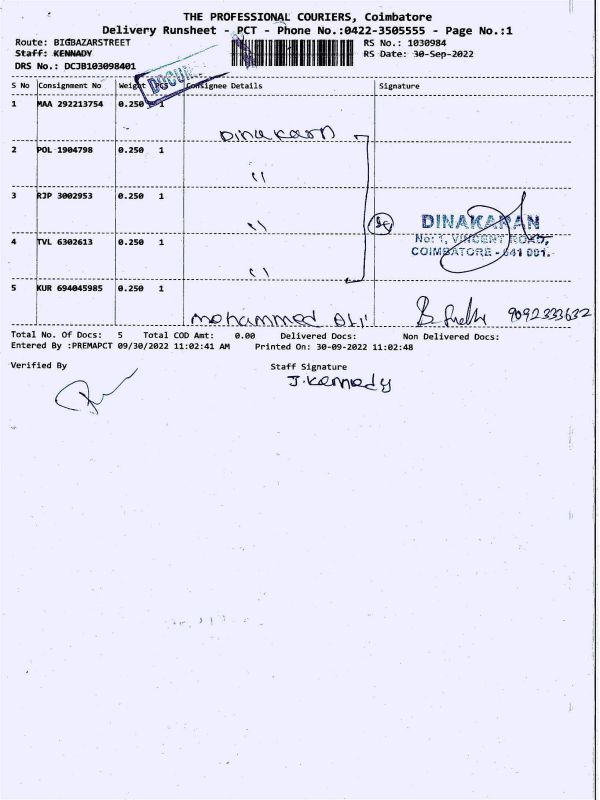 THE PROFESSIONAL COURIERS, Coimbatore
Delivery Runsheet - PCT - Phone No.:0422-3505555 - Page No.:1
Route: BIGBAZARSTREET RS No.: 1030984
Staff: KENNADY RS Date: 30-Sep-2022
DRS No.: DCJB103098401
S No Consignment No Weight PCS Consignee Details Signature
1 MAA 292213754 0.250 1
Dinakaran
2 POL 1904798 0.250 1
"
3 RJP 3002953 0.250 1
"
DINAKARAN
4 TVL 6302613 0.250 1 No: 1, VINCENT ROAD,
COIMBATORE - 641 001.
"
5 KUR 694045985 0.250 1
mohammed Ali 9092333632
Total No. Of Docs: 5 Total COD Amt: 0.00 Delivered Docs: Non Delivered Docs:
Entered By :PREMAPCT 09/30/2022 11:02:41 AM Printed On: 30-09-2022 11:02:48
Verified By Staff Signature
J.Kennedy